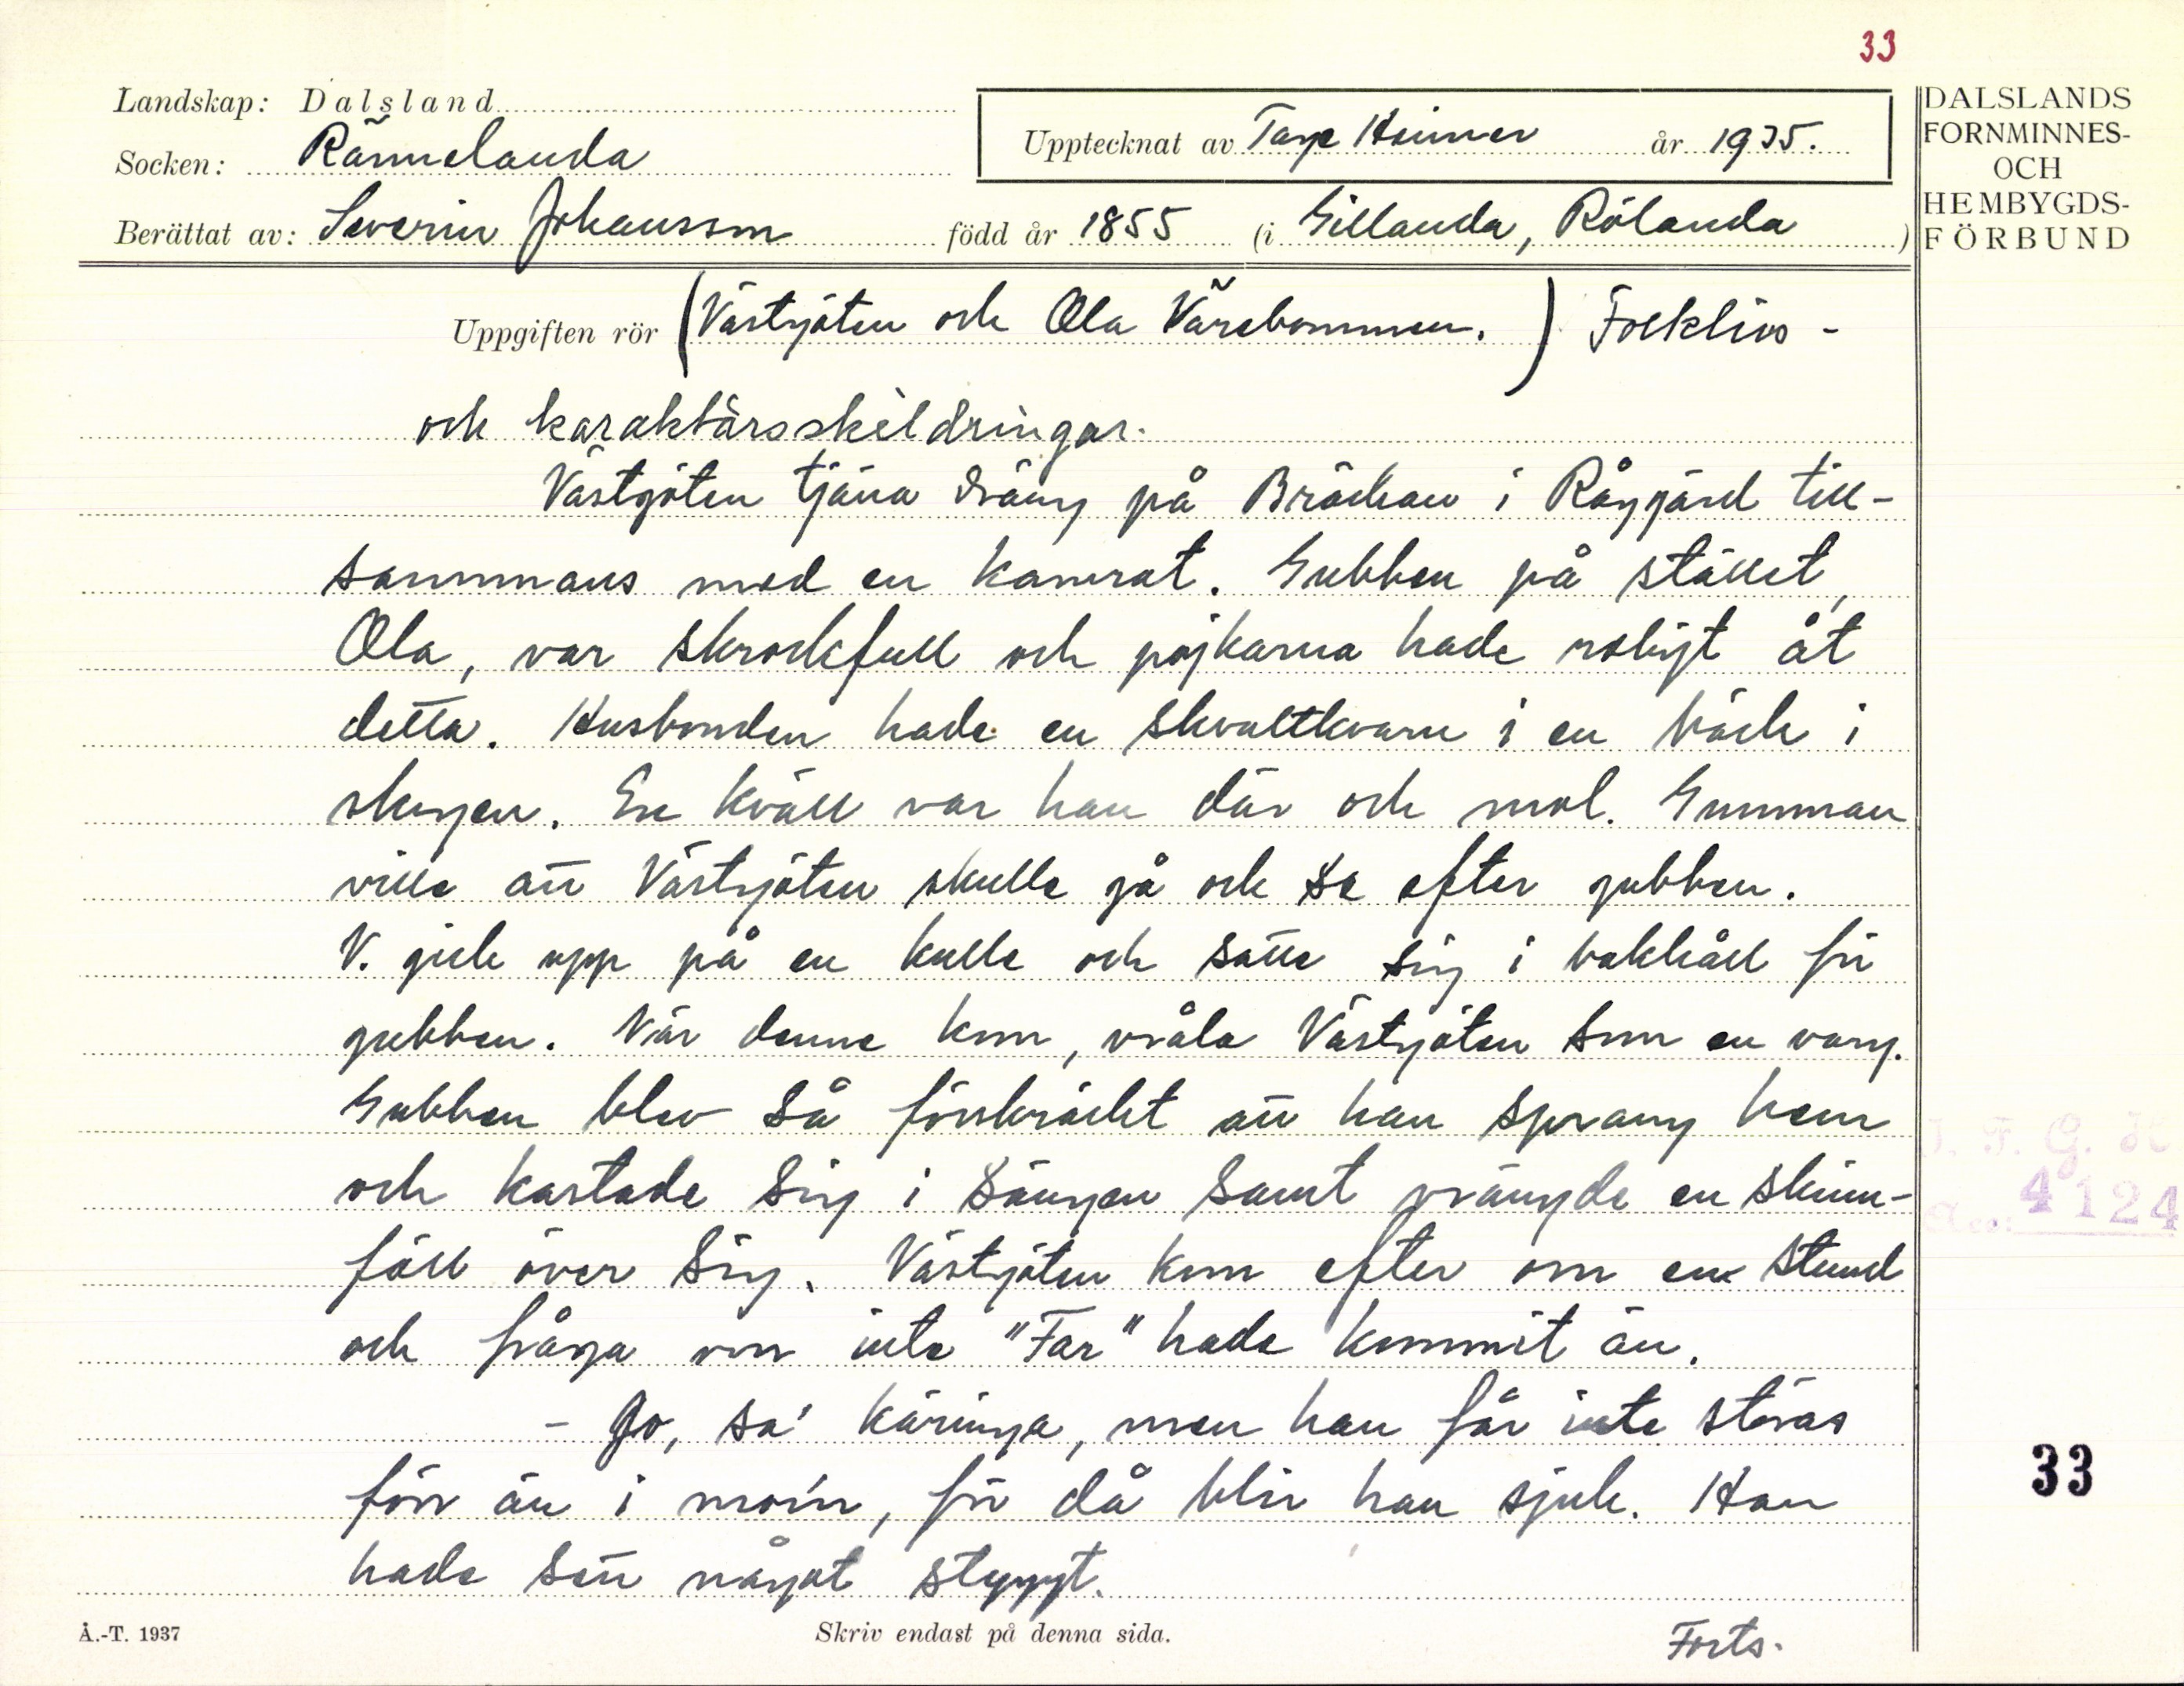 33
Landskap: Dalsland
Socken: Rännelanda
Upptecknat av Tage Heimer år 1935.
Berättat av: Severin Johansson född år 1855 (i Gillanda, Rölanda)
DALSLANDS
FORNMINNES-
OCH
HEMBYGDS-
FÖRBUND
Uppgiften rör (Västgöten och Ola Värebommen.) Folklivs-
och karaktärsskildringar.
Västgöten tjäna dräng på Bräckan i Råggärd till-
sammans med en kamrat. Gubben på stället,
Ola, var skrockfull och pojkarna hade roligt åt
detta. Husbonden hade en skvaltkvarn i en bäck i
skogen. En kväll var han där och mol. Gumman
ville att Västgöten skulle gå och se efter gubben.
V. gick upp på en kulle och satte sig i bakhåll för
gubben. När denne kom, vråla Västgöten som en varg.
Gubben blev så förskräckt att han sprang hem
och kastade sig i sängen samt vrängde en skinn-
fäll över sig. Västgöten kom efter om en stund
och fråga om inte "Far" hade kommit än.
- Jo, sa' käringa, men han får inte störas
förr än i mor'n, för då blir han sjuk. Han
hade sett något styggt.
J. F. G. H
Acc: 4124
33
Å.-T. 1937
Skriv endast på denna sida.
Forts.